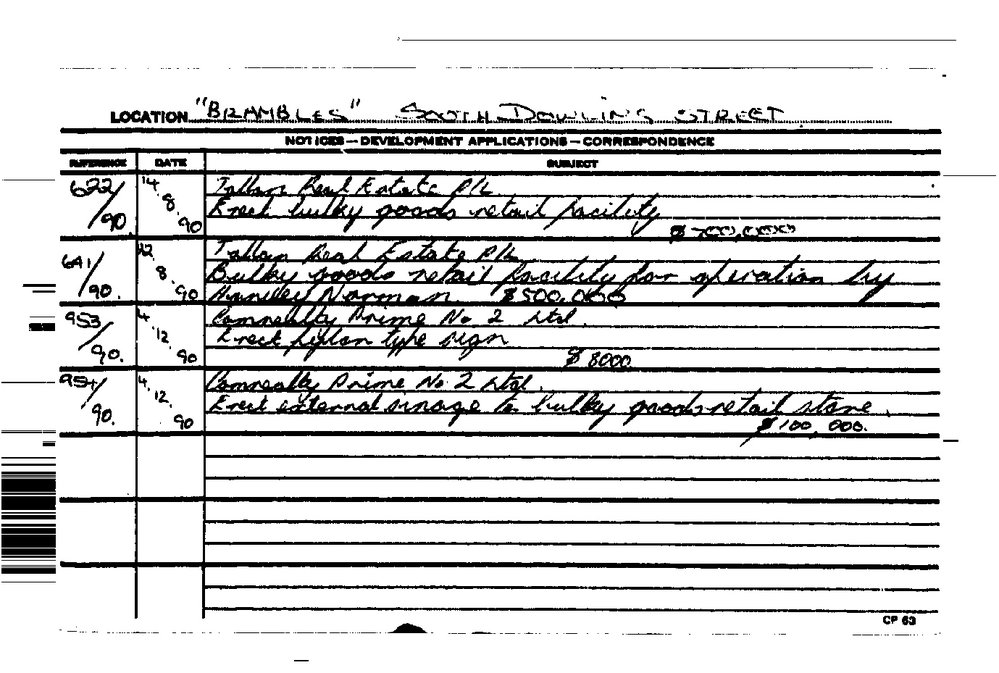 LOCATION "BRAMBLES" SOUTH DOWLING STREET
NOTICES — DEVELOPMENT APPLICATIONS — CORRESPONDENCE
REFERENCE DATE SUBJECT
622/90 14.8.90 Real Estate P/L
Erect bulky goods retail facility
$700,000
641/90. 22.8.90 Real Estate P/L
Bulky goods retail facility for operation by
Norman $500,000
953/90. 4.12.90 Prime No. 2 Ltd.
Erect pylon type sign
$8000.
954/90. 4.12.90 Prime No. 2 Ltd.
Erect external sinage to bulky goods retail store.
$100,000.
CP 63